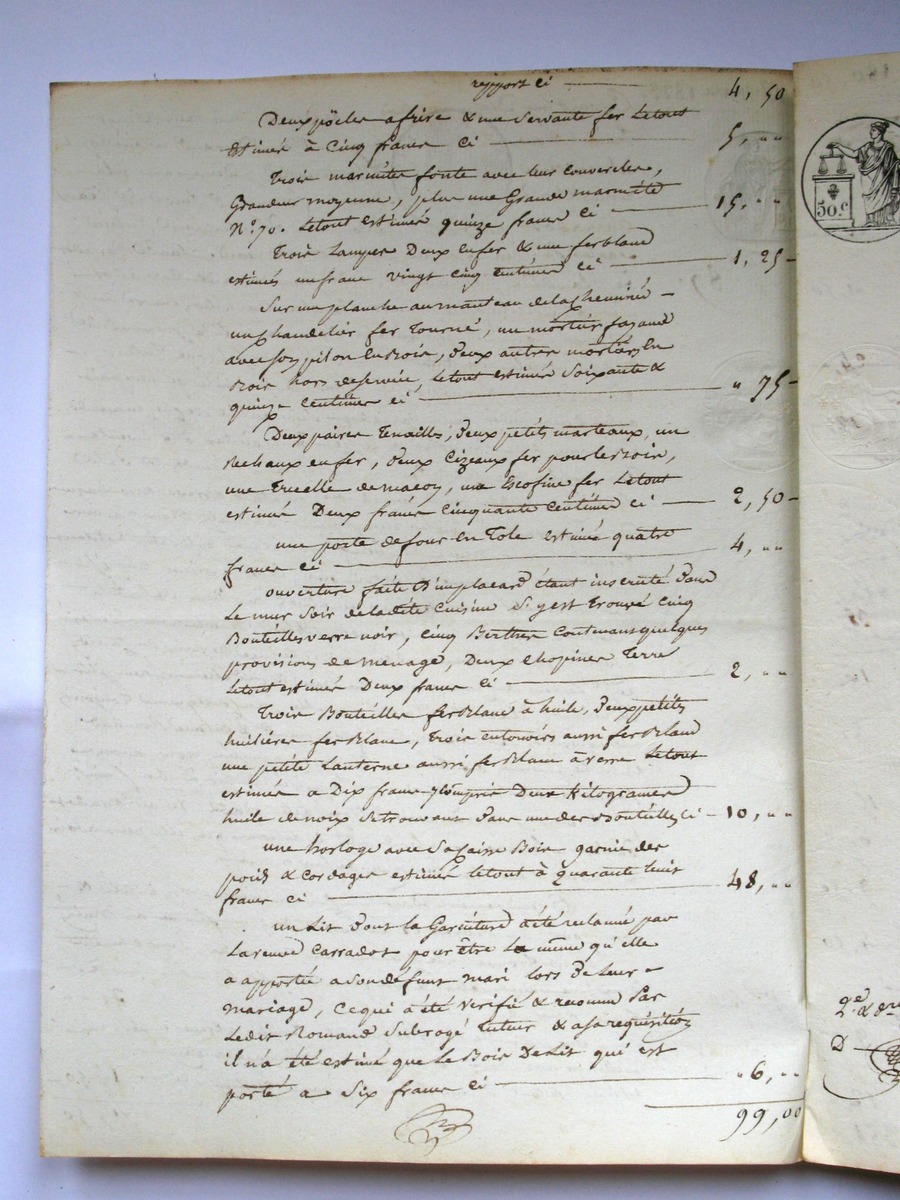 report ci ——— 4, 50
Deux pôeles a frire & une Servante fer Letout
Estimés à Cinq francs Ci ——— 5, " "
Trois marmites fonte avec leur couvercles,
Grandeur moyenne, plus une Grande marmite
N.° 70. Letout estimés quinze francs Ci ——— 15, " "
Trois Lampes Deux enfer & une ferblanc
estimés un franc vingt cinq Centimes Ci ——— 1, 25
Sur une planche au manteau de la Cheminée –
un Chandelier fer Tourné, un mortier
avec son pilon en Bois, Deux autres mortiers En
Bois hors de service, Letout estimés Soixante &
quinze Centimes Ci ——— " 75
Deux paires Tenailles, Deux petits marteaux, un
Rechaux en fer, Deux Cizeaux fer pour le Bois,
une Truelle de maçon, une Escofine fer Letout
estimés Deux francs Cinquante Centimes Ci ——— 2, 50
une porte de four En Tole estimée quatre
francs Ci ——— 4, " "
ouverture faite D'un placard étant incruté Dans
Le mur Soir de ladite Cuisine S'y est trouvé Cinq
Bouteilles verre noir, Cinq Berthes Contenans quelques
provisions de menage, Deux Chopines Terre
Letout estimés Deux francs Ci ——— 2, " "
Trois Bouteilles fer Blanc à huile, Deux petites
huilières fer Blanc, Trois entonoirs aussi fer Blanc
une petite Lanterne aussi fer Blanc à verre Letout
estimés a Dix francs y Compris Deux Kilogrames
huile de noix se trouvant Dans une des Bouteilles Ci – 10, " "
une horloge avec Sa Caisse Bois garnie des
poids & Cordages estimés Letout à quarante huit
francs Ci ——— 48, " "
un Lit Dont la Garniture a été reclamée par
La veuve Carradot pour être La même qu'elle
a apportée a Son défunt mari lors de Leur
mariage, Ce qui a été verifié & reconnu Par
Ledit Romand Subrogé tuteur & a sa requisition
il n'a été estimé que Le Bois De Lit qui est
porté a Six francs Ci ——— " 6, " "
99, 00
50.c
2.e &
D